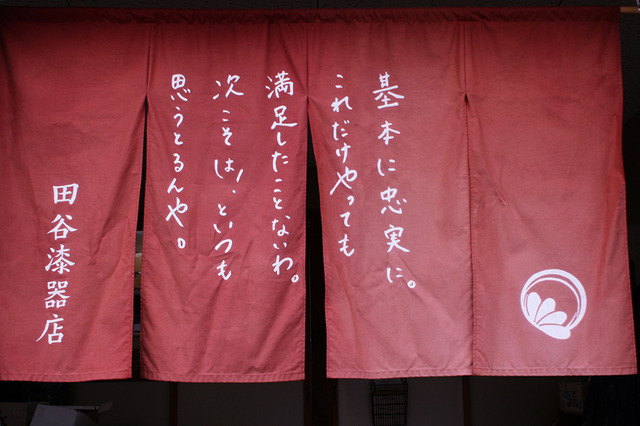 基本に忠実に。
これだけやっても
満足したことないわ。
次こそは！、といつも
思うとるんや。
田谷漆器店